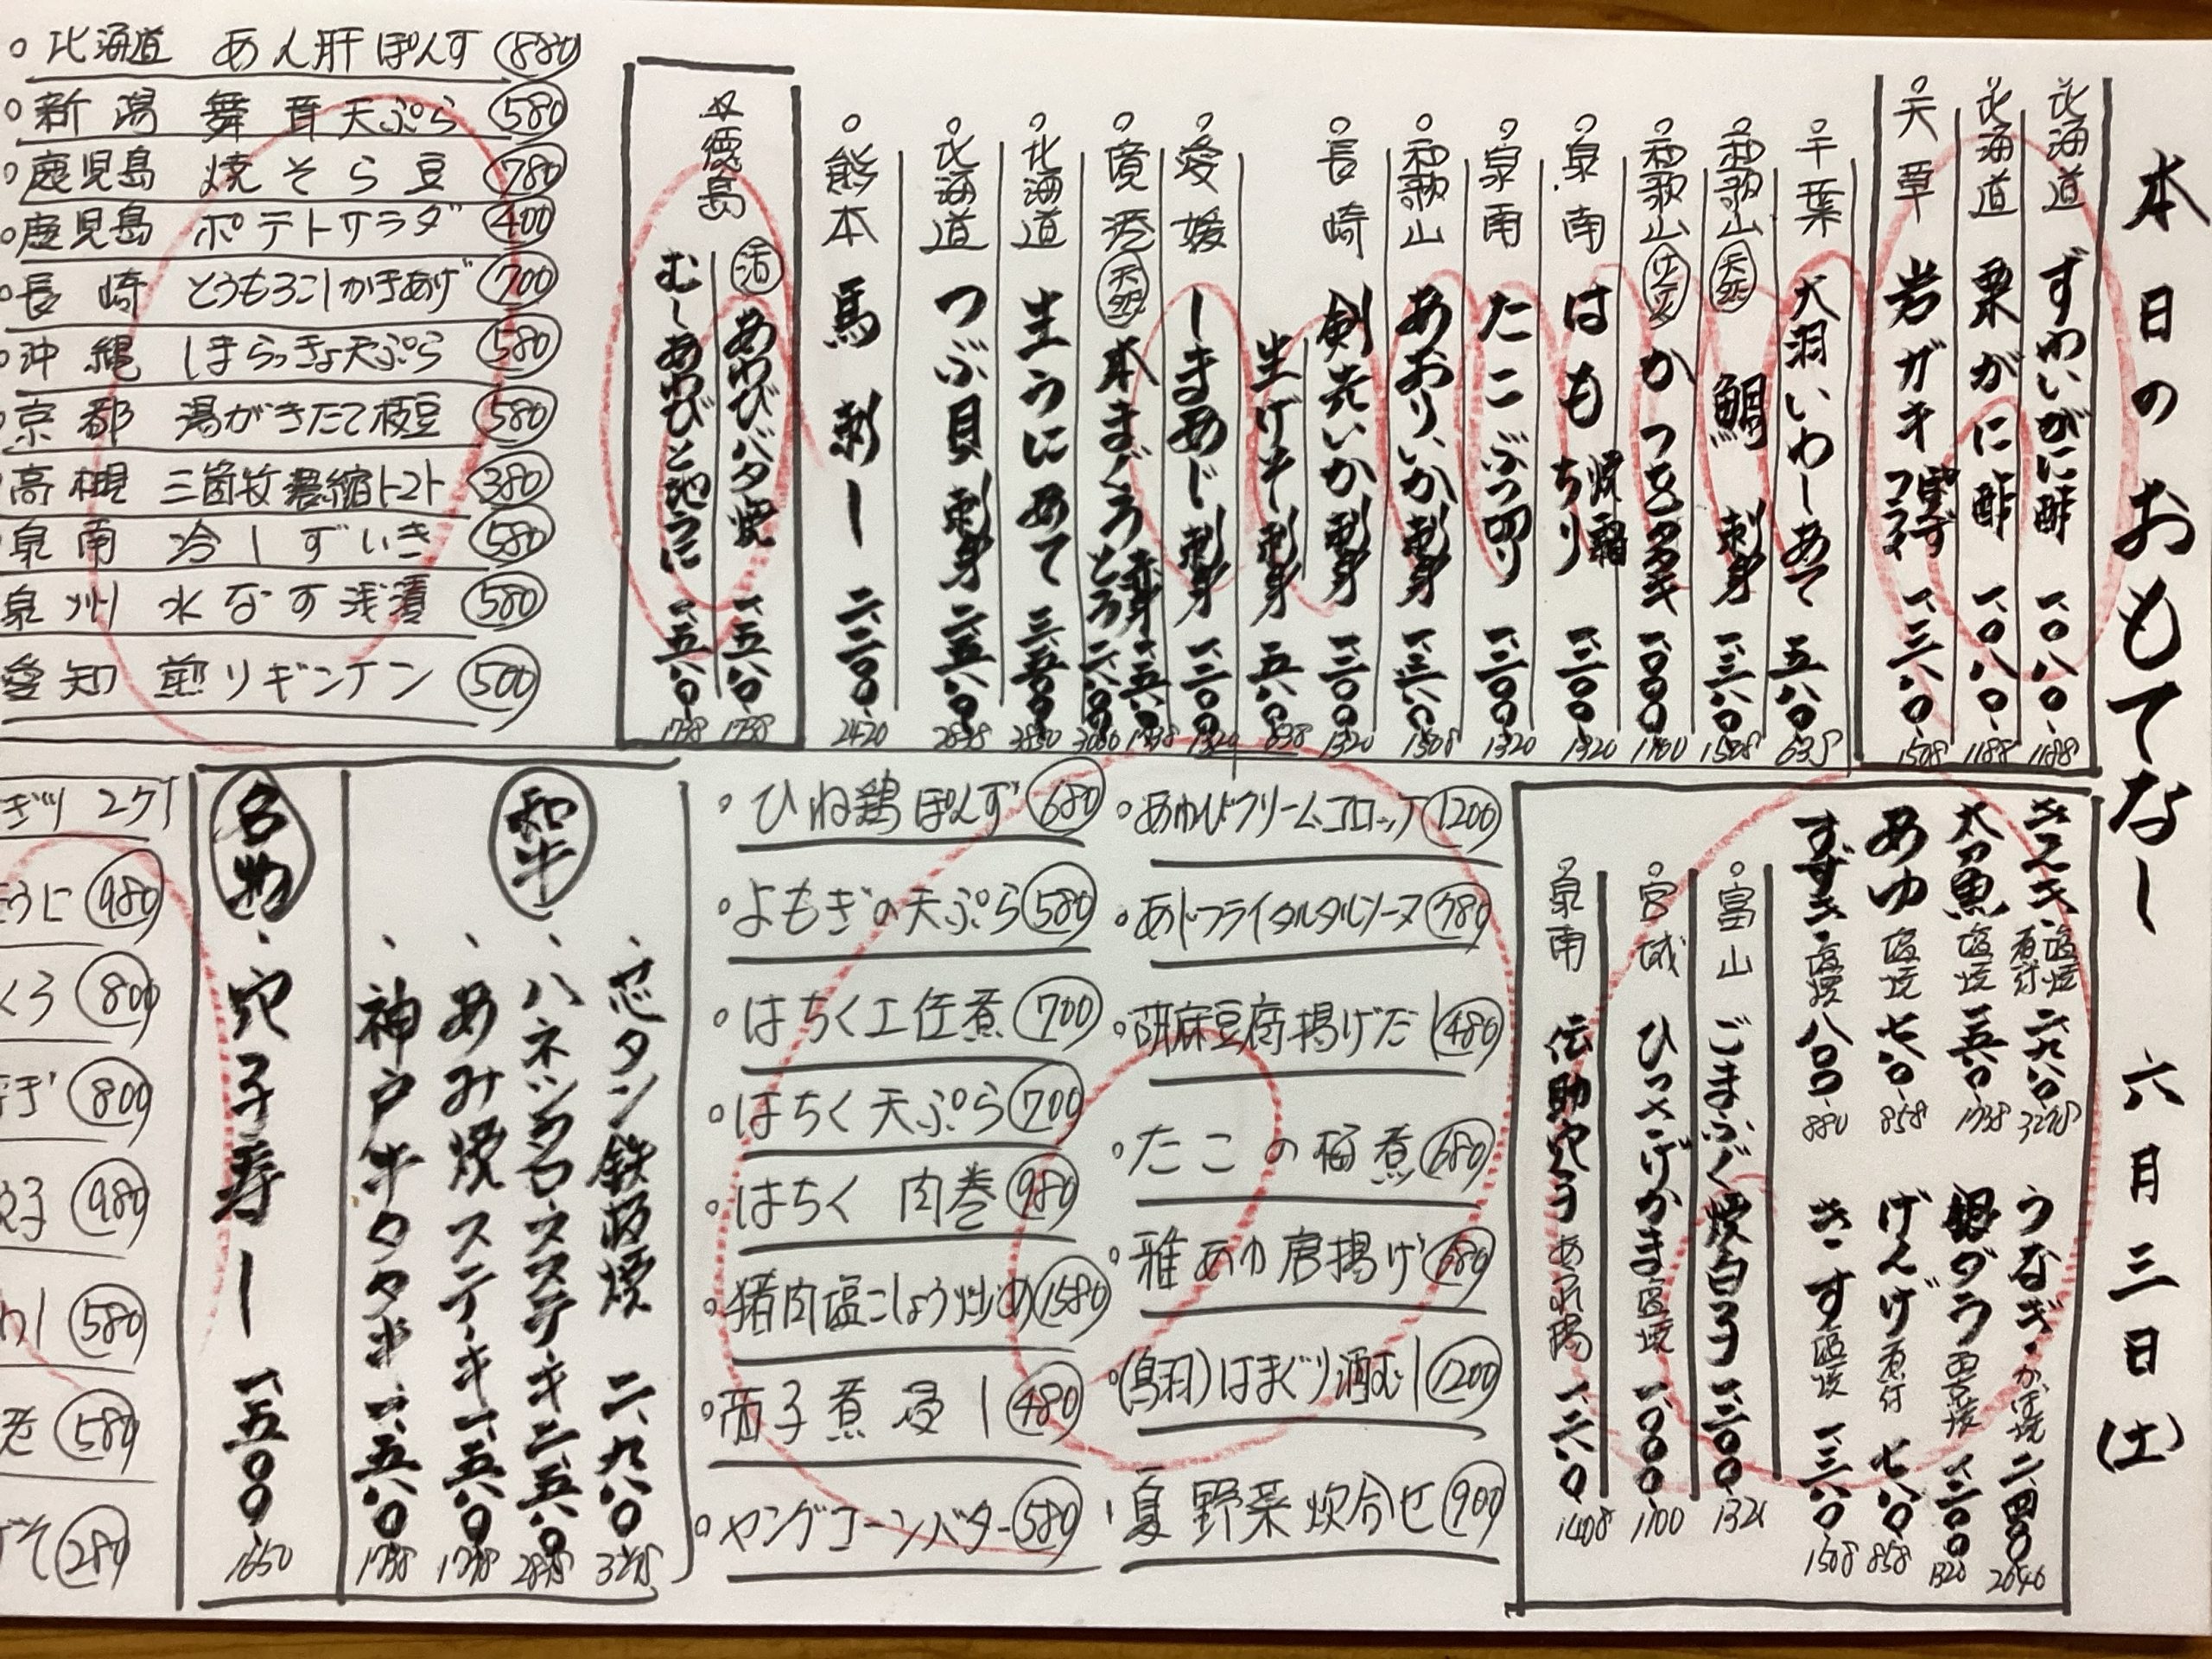 本日のおもてなし 六月三日(土)
北海道 ずわいがに酢 一、〇八〇 1188
北海道 栗がに酢 一、〇八〇 1188
天草 岩ガキ 一、三八〇 1508
千葉 大羽いわしあて 五八〇 638
和歌山 天然 鯛 刺身 一、三八〇 1508
和歌山 かつおタタキ 一、〇〇〇 1100
泉南 はも ちり 焼霜 一、二〇〇 1320
泉南 たこぶつ切り 一、二〇〇 1320
和歌山 あおりいか刺身 一、三八〇 1508
長崎 剣先いか刺身 一、二〇〇 1320
生げそ刺身 五八〇 638
愛媛 しまあじ刺身 一、二〇〇 1320
境港 天然 本まぐろ 赤身 一、五八〇 1738
とろ 二、八〇〇 3080
北海道 生うにあて 三、五〇〇 3850
北海道 つぶ貝刺身 二、五八〇 2838
熊本 馬刺し 二、二〇〇 2420
徳島
活 あわびバタ焼 一、五八〇 1738
むしあわびと地うに 一、五八〇 1738
○北海道 あん肝ぽんず 880
○新潟 舞茸天ぷら 580
○鹿児島 焼そら豆 780
○鹿児島 ポテトサラダ 400
○長崎 とうもろこしかきあげ 700
○沖縄 しまらっきょ天ぷら 580
京都 湯がきたて枝豆 580
高槻 三箇牧濃縮トマト 380
泉南 冷しずいき 580
泉州 水なす浅漬 580
愛知 煎りギンナン 500
塩焼 煮付 二、九八〇 3278
太刀魚 塩焼 一、五八〇 1738
あゆ 塩焼 七八〇 858
すずき 塩焼 八〇〇 880
うなぎ かば焼 二、四〇〇 2640
銀ダラ 西京焼 一、二〇〇 1320
げんげ 煮付 七八〇 858
きす 塩焼 一、三八〇 1508
○富山 ごまふぐ炙白子 一、二〇〇 1320
○宮城 ひっさげかま 塩焼 一、〇〇〇 1100
○泉南 伝助穴子 あぶり 一、二八〇 1408
○あわびクリームコロッケ 1200
○あじフライタルタルソース 780
○胡麻豆腐揚げだし 480
○たこの梅煮 680
○稚あゆ唐揚げ 680
○(鳥羽)はまぐり酒むし 1200
○夏野菜炊合せ 900
○ひね鶏ぽんず 680
○よもぎの天ぷら 580
○はちく土佐煮 700
○はちく天ぷら 700
○はちく肉巻 980
○猪肉塩こしょう炒め 1580
○茄子煮浸し 480
○ヤングコーンバター 580
和牛
芯タン鉄板焼 二、九八〇 3278
、ハネシタロースステーキ 二、五八〇 2838
、あみ焼ステーキ 一、五八〇 1738
、神戸牛タタキ 一、五八〇 1738
名物
、穴子寿し 一、五〇〇 1650
ぎり 2ケ
うに 980
くろ 800
ぎ 800
子 980
わし 580
580
げそ 280